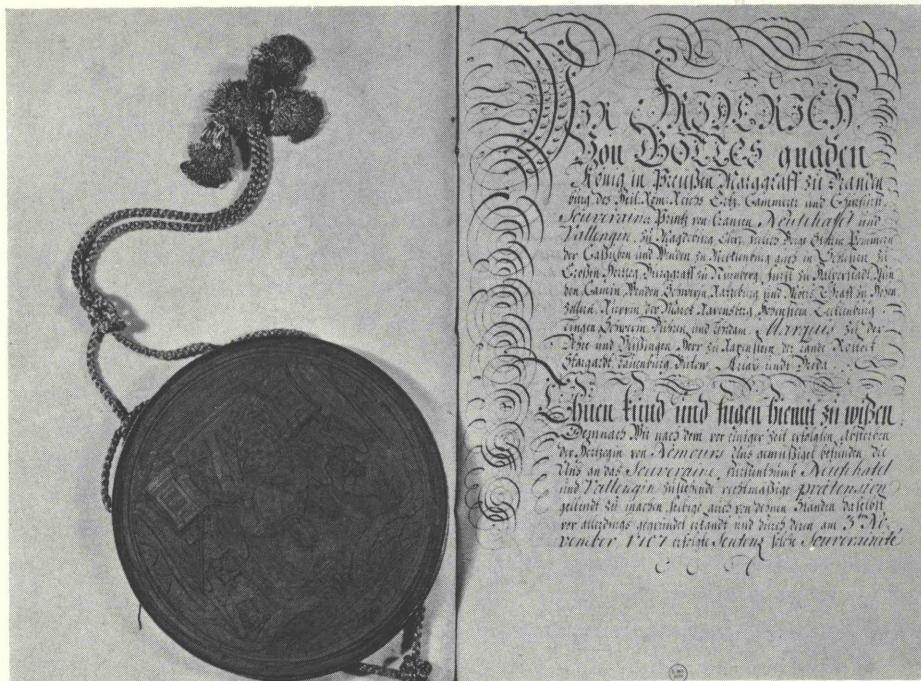 WIR FRIDERICH
Von GOTTES gnaden
König in Preußen, Marggraff zu Branden
burg, des Heil. Röm. Reichs Ertz-Cammerer und Churfürst,
Souverainer Printz von Oranien, Neufchatel und
Vallengin, zu Magdeburg, Cleve, Jülich, Berge, Stettin, Pommern
der Caßuben und Wenden, zu Mecklenburg auch in Schlesien zu
Croßen Hertzog, Burggraff zu Nürnberg, Fürst zu Halberstadt, Min
den, Camin, Wenden, Schwerin, Ratzeburg und Moers, Graff zu Hohen
zollern, Ruppin, der Marck, Ravensberg, Hohenstein, Tecklenburg
Lingen, Schwerin, Bühren und Lehrdam, Marquis zu der
Vehre und Vlißingen, Herr zu Ravenstein, der Lande Rostock
Stargardt, Lauenburg, Bütow, Arlay und Breda.
Thuen kund und fügen hiemit zu wißen
Demnach Wir nach dem vor einiger Zeit erfolgten Absterben
der Hertzogin von Nemours Uns gemüßiget befunden, die
Uns an das Souveraine Fürstenthumb Neufchatel
und Vallengin zustehende rechtmäßige prætension
geltend zu machen, selbige auch von denen Ständen daselbst
vor allerdings gegründet erkandt und durch deren am 3ten No
vember 1707 erfolgte Sentenz solche Souverainité